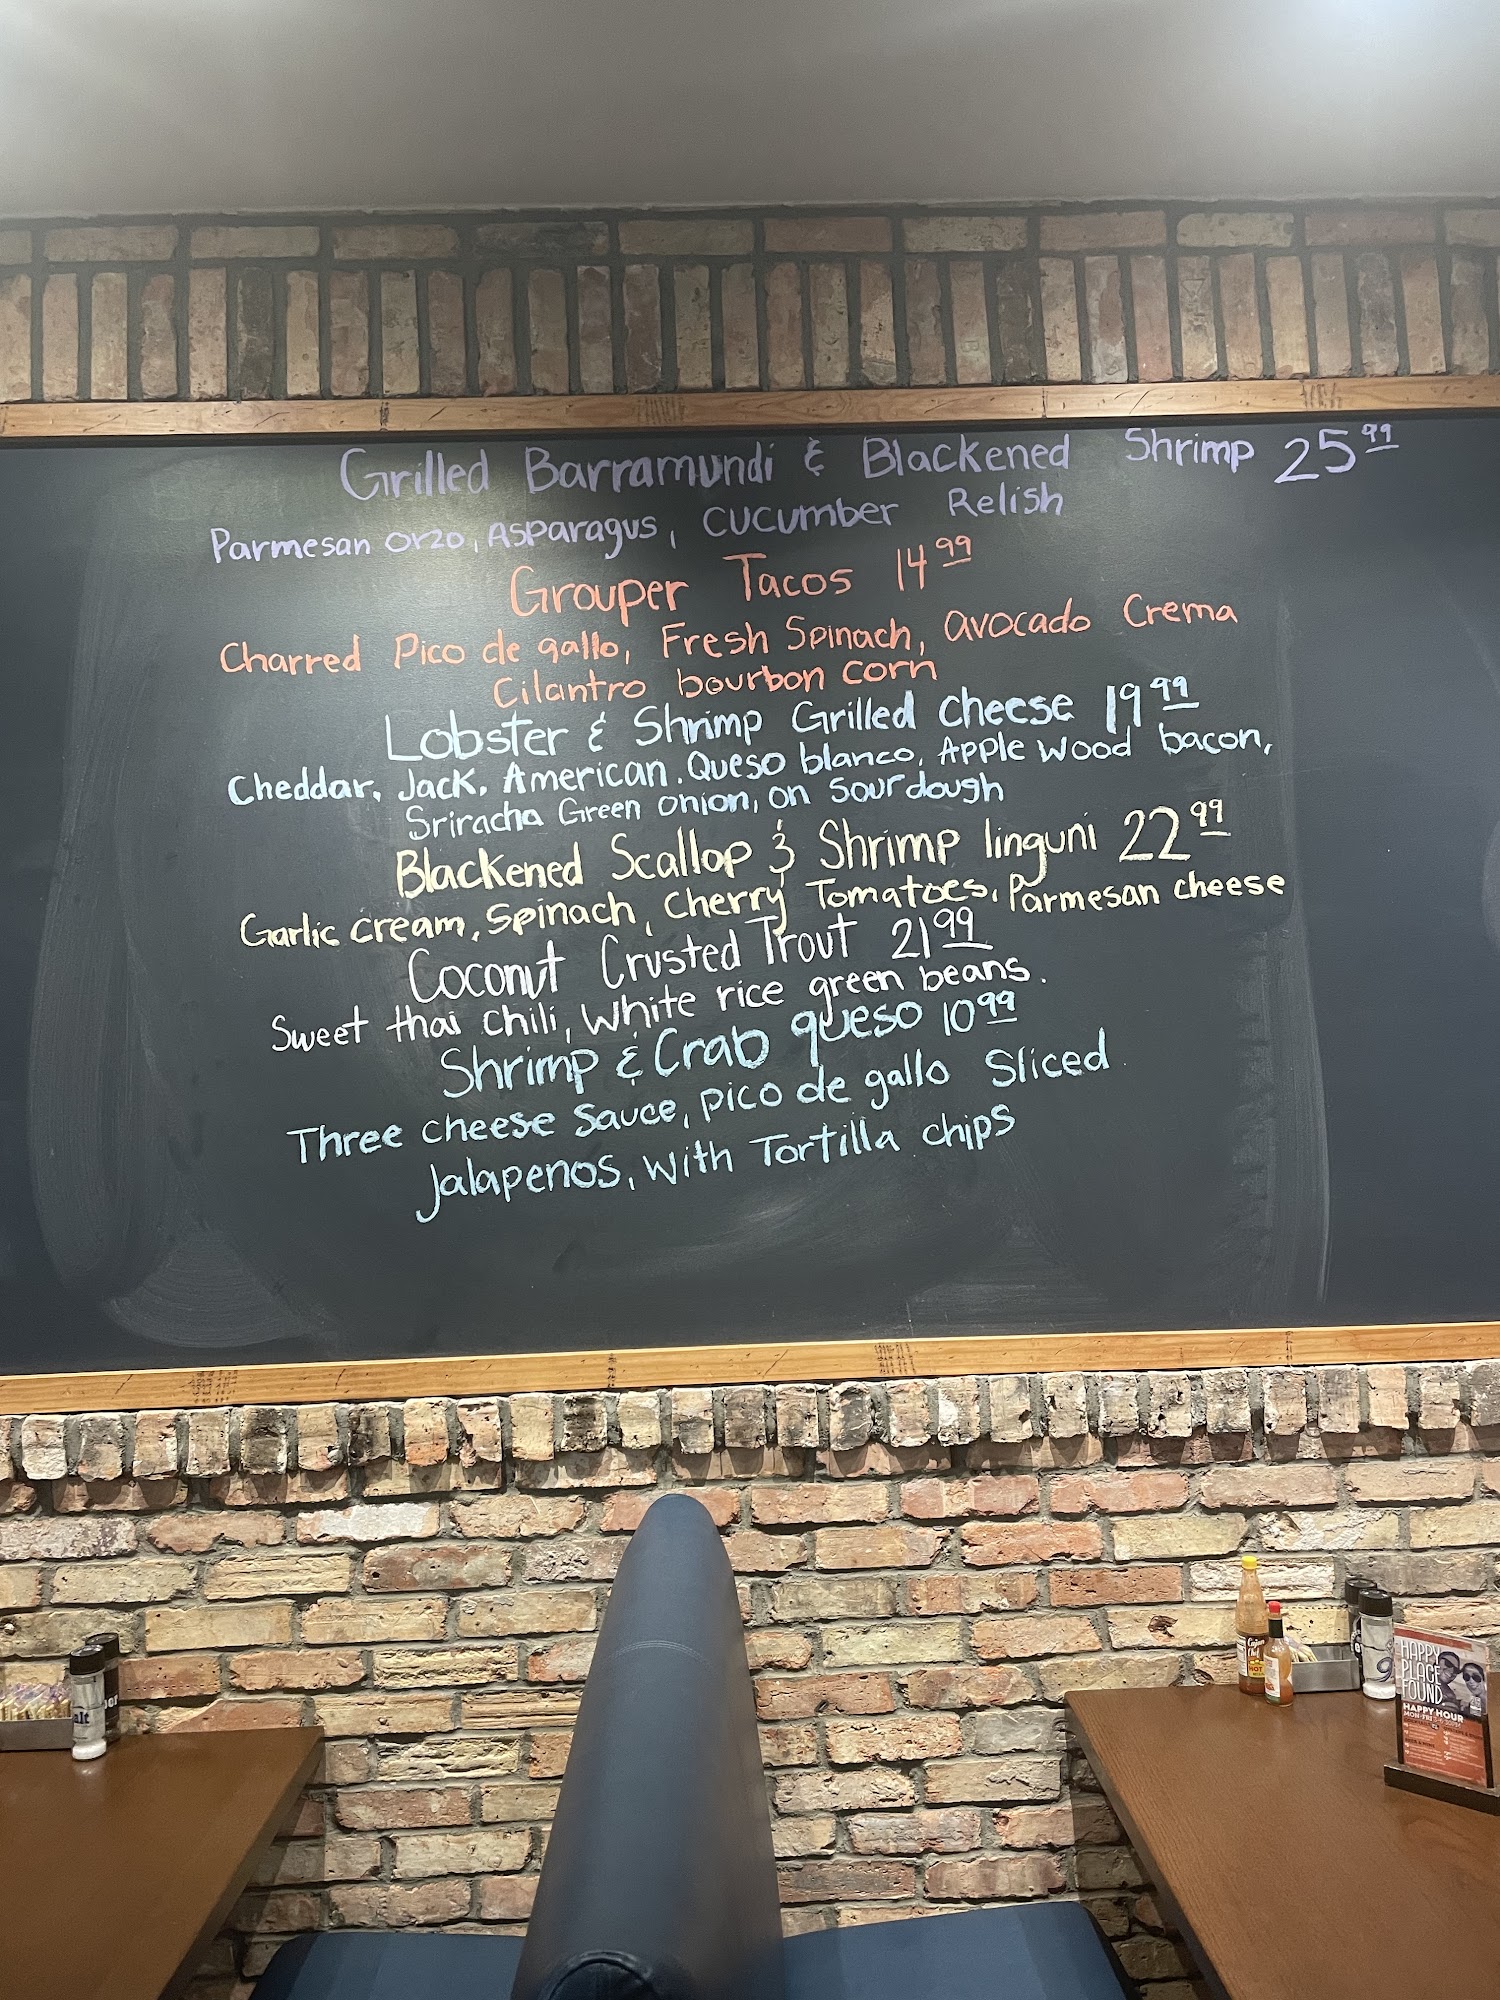 Grilled Barramundi & Blackened Shrimp 25 99
Parmesan orzo, Asparagus, cucumber Relish
Grouper Tacos 14 99
Charred Pico de gallo, Fresh Spinach, avocado Crema
Cilantro bourbon corn
Lobster & Shrimp Grilled cheese 19 99
Cheddar, Jack, American, Queso blanco, Apple wood bacon,
Sriracha Green onion, on Sourdough
Blackened Scallop & Shrimp linguni 22 99
Garlic cream, spinach, cherry Tomatoes, Parmesan cheese
Coconut Crusted Trout 21 99
Sweet thai chili, white rice green beans.
Shrimp & Crab queso 10 99
Three cheese Sauce, pico de gallo Sliced
Jalapenos, with Tortilla chips
HAPPY
PLACE
FOUND
HAPPY HOUR
HOT
alt